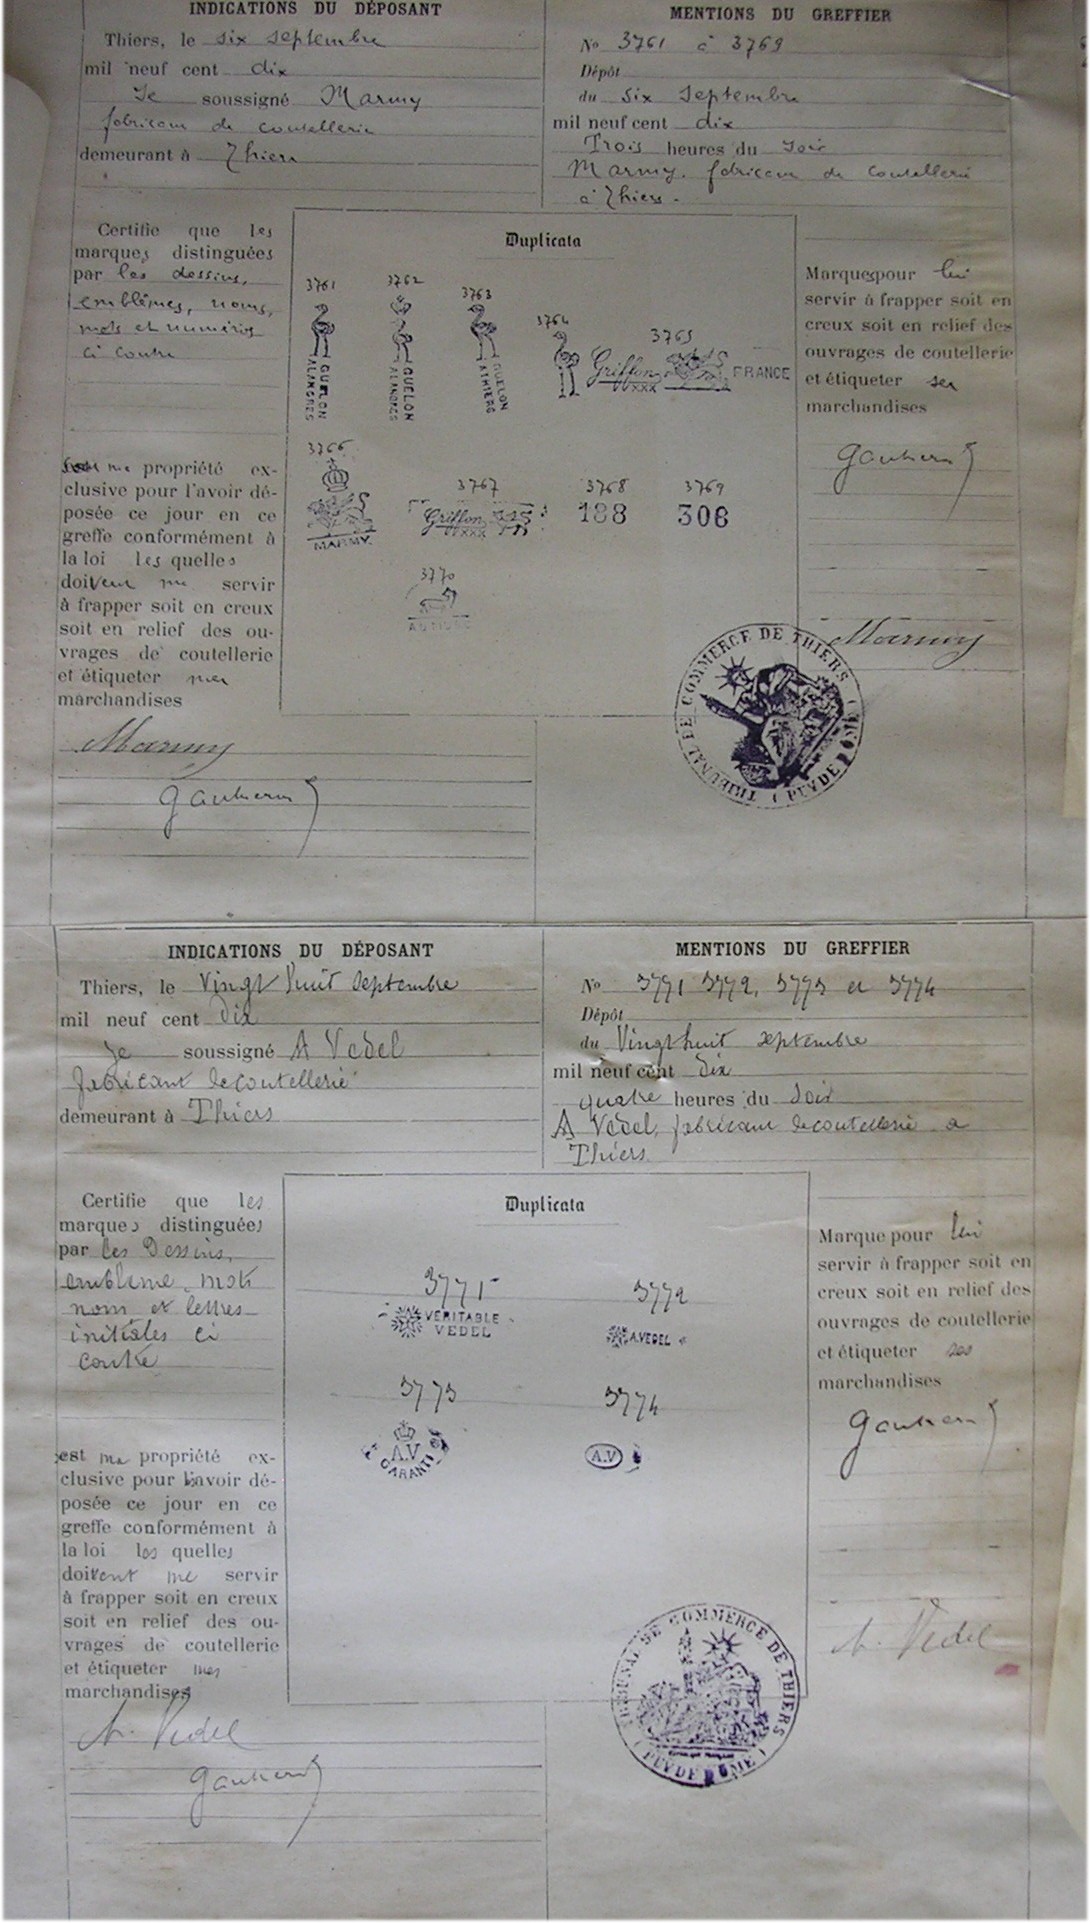 INDICATIONS DU DÉPOSANT
Thiers, le six septembre
mil neuf cent dix
Je soussigné Marmy
fabricant de coutellerie
demeurant à Thiers
MENTIONS DU GREFFIER
No 3761 à 3769
Dépôt
du six septembre
mil neuf cent dix
Trois heures du soir
Marmy, fabricant de coutellerie
à Thiers.
Certifie que les
marques distinguées
par les dessins,
emblêmes, noms,
mots et numéros
ci contre
me propriété ex-
clusive pour l'avoir dé-
posée ce jour en ce
greffe conformément à
la loi les quelles
doivent me servir
à frapper soit en creux
soit en relief des ou-
vrages de coutellerie
et étiqueter mes
marchandises
Marmy
Duplicata
3761 3762 3763 3764 3765
GUELON
ALANGRES
GUELON
ALANGRES
GUELON
ATHIERS
Griffon XXX FRANCE
3766 3767 3768 3769
MARMY
Griffon XXX
188 306
3770
Marques pour lui
servir à frapper soit en
creux soit en relief des
ouvrages de coutellerie
et étiqueter ses
marchandises
Marmy
TRIBUNAL DE COMMERCE DE THIERS
(PUY DE DÔME)
INDICATIONS DU DÉPOSANT
Thiers, le Vingt huit septembre
mil neuf cent Dix
Je soussigné A Vedel
fabricant de coutellerie
demeurant à Thiers
MENTIONS DU GREFFIER
No 3771 3772, 3773 et 3774
Dépôt
du Vingt huit septembre
mil neuf cent Dix
quatre heures du soir
A Vedel, fabricant de coutellerie a
Thiers
Certifie que les
marques distinguées
par les Dessins,
embleme, mots
nom et lettres
initiales ci
contre
est ma propriété ex-
clusive pour l'avoir dé-
posée ce jour en ce
greffe conformément à
la loi les quelles
doivent me servir
à frapper soit en creux
soit en relief des ou-
vrages de coutellerie
et étiqueter mes
marchandises
A. Vedel
Duplicata
3771 3772
VERITABLE
VEDEL
A.VEDEL
3773 3774
A.V
GARANTI
A.V
Marque pour lui
servir à frapper soit en
creux soit en relief des
ouvrages de coutellerie
et étiqueter ses
marchandises
A. Vedel
TRIBUNAL DE COMMERCE DE THIERS
(PUY DE DÔME)